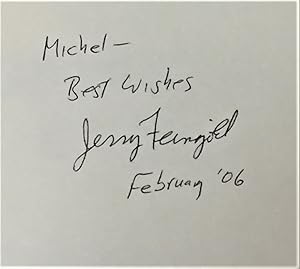 Michel—
Best Wishes
Jerry Feingold
February '06